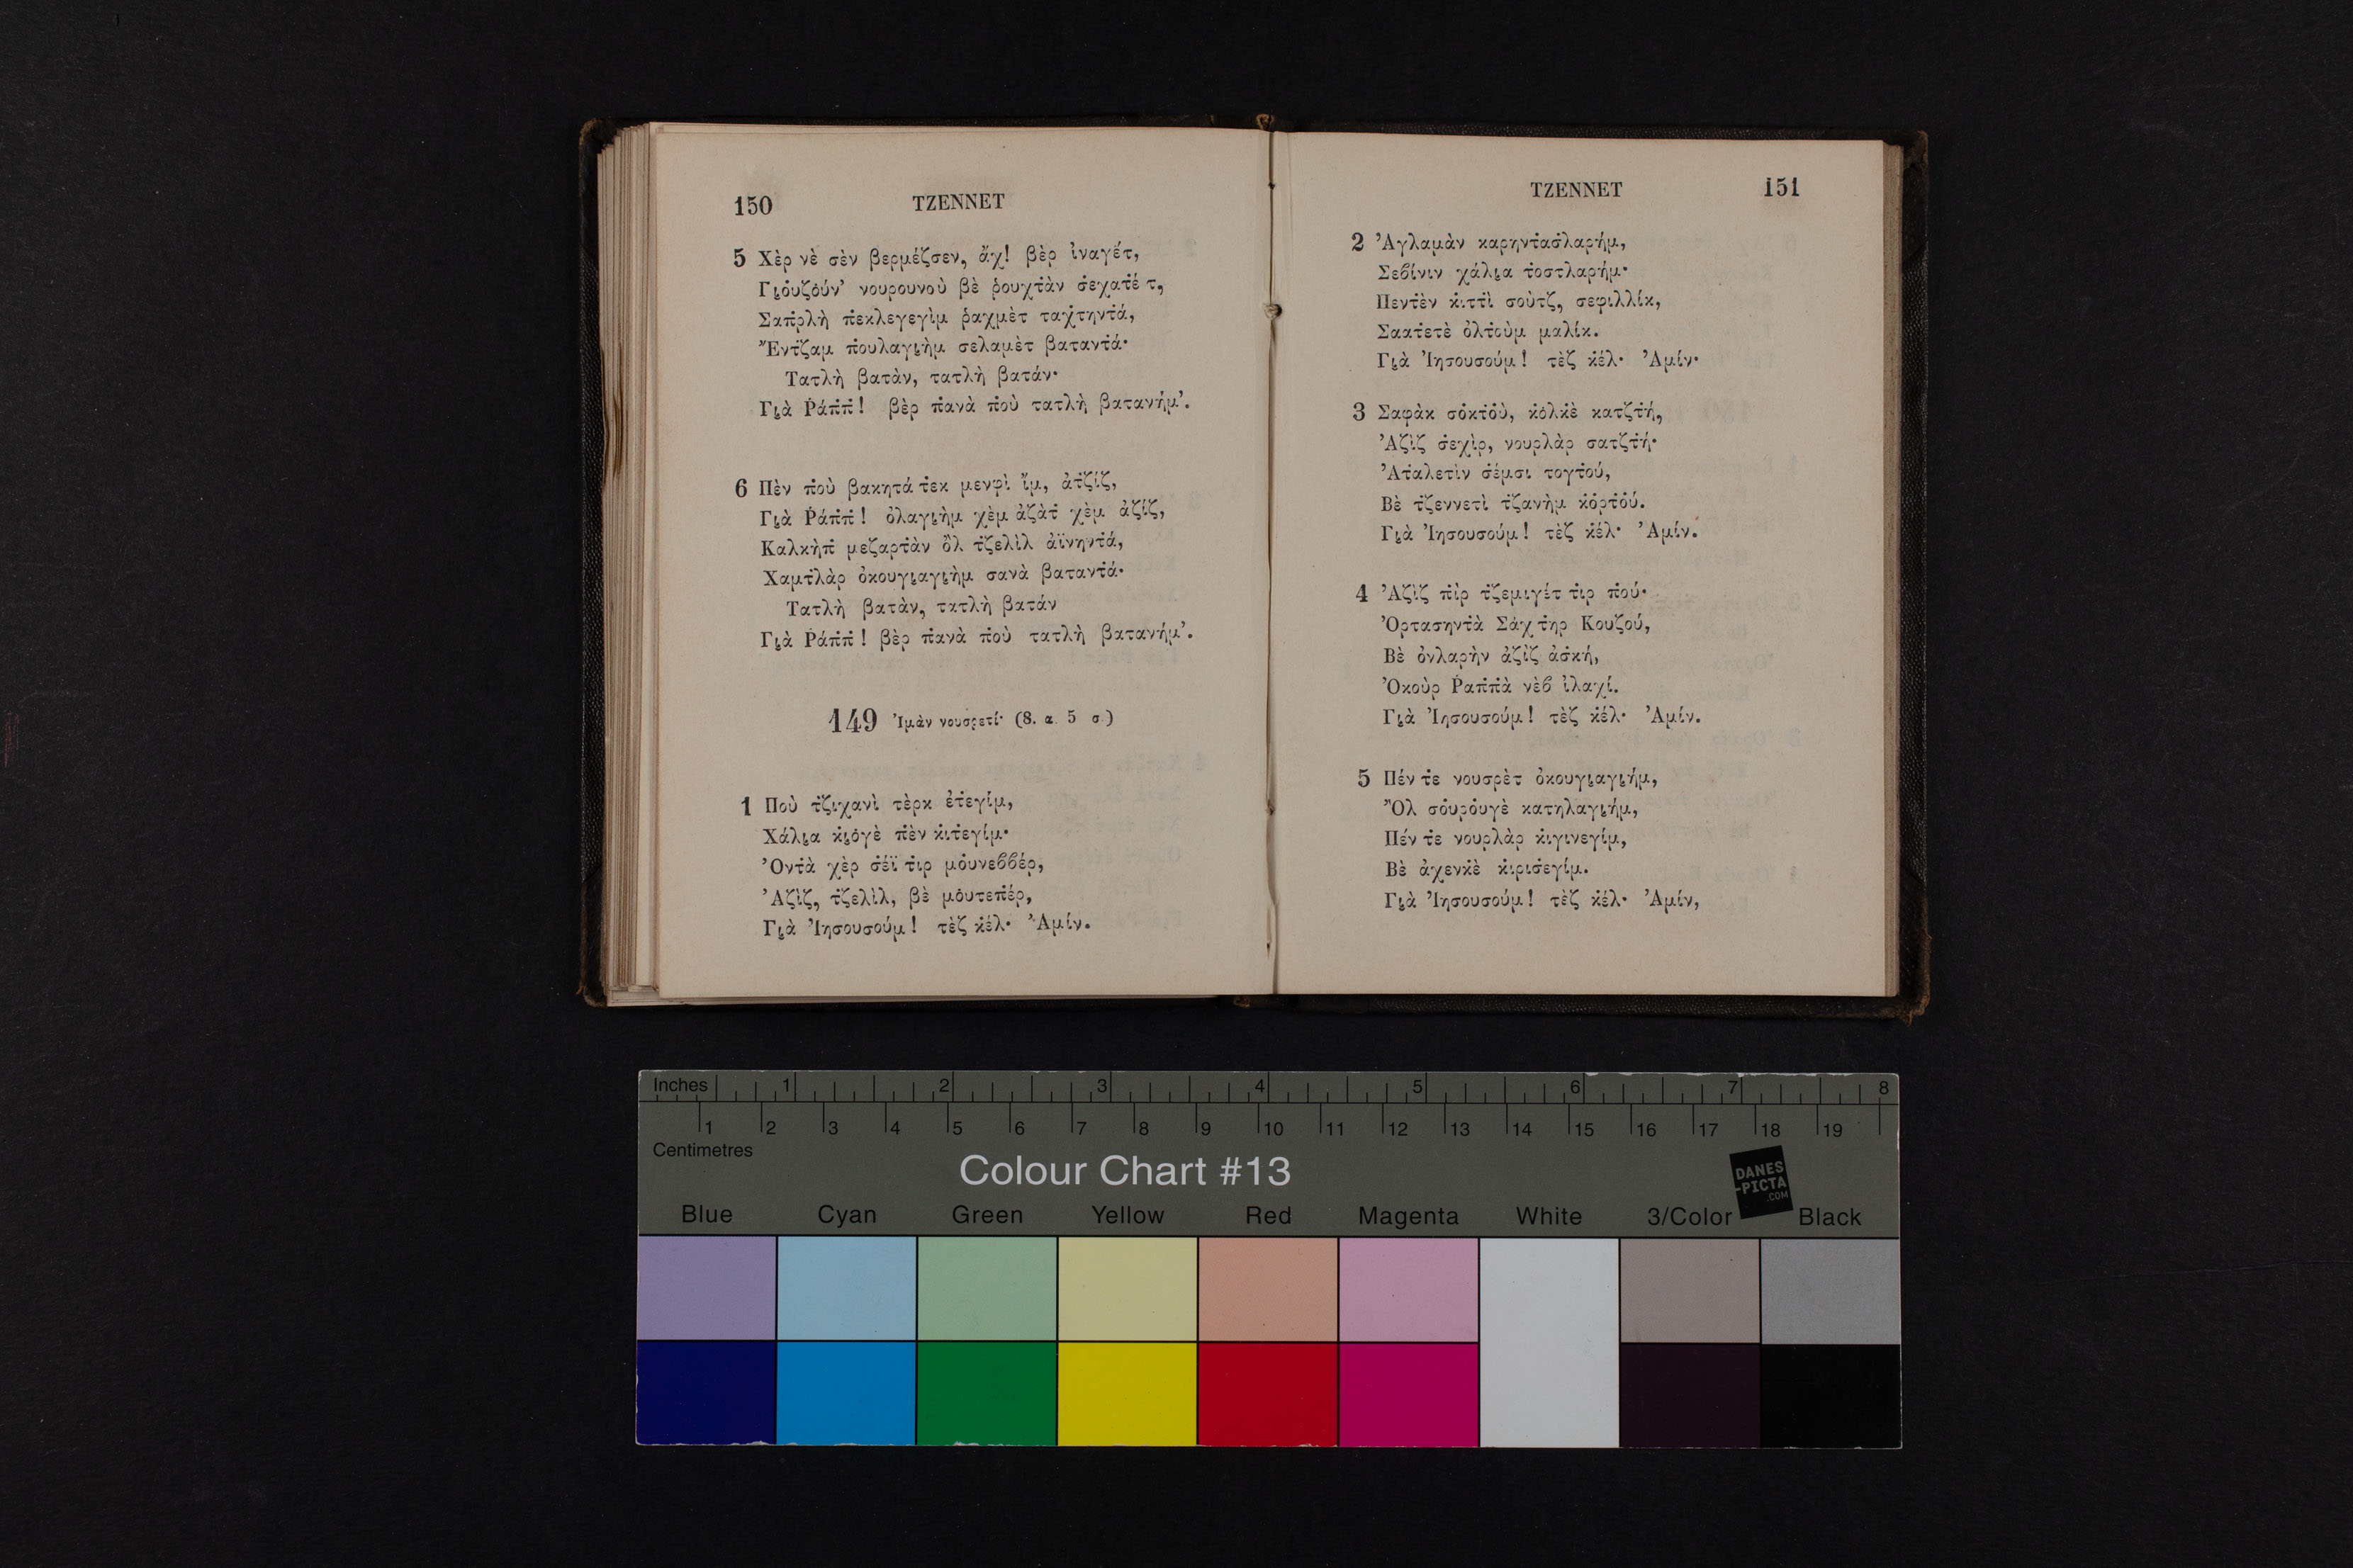 150 ΤΖΕΝΝΕΤ
5 Χὲρ νὲ σὲν βερμέζσεν, ἄχ! βὲρ ἰναγέτ,
Γιὀυζὀύν’ νουρουνοὺ βὲ ῥουχτὰν σ̇εχατέτ,
Σαπ̇ρλὴ π̇εκλεγεγὶμ ῥαχμὲτ ταχ̇τηντ̇ά,
Ἔντ̇ζαμ π̇ουλαγιὴμ σελαμὲτ βαταντ̇ά·
Τατλὴ βατὰν, τατλὴ βατάν·
Γιὰ Ῥάπ̇π̇! βὲρ π̇ανὰ π̇οὺ τατλὴ βατανήμ’.
6 Πὲν π̇οὺ βακητά τ̇εκ μενφὶ ἴμ, ἀτ̇ζίζ,
Γιὰ Ῥάπ̇π̇! ὀλαγιὴμ χὲμ ἀζὰτ̇ χὲμ ἀζίζ,
Καλκὴπ̇ μεζαρτ̇ὰν ὂλ τ̇ζελὶλ ἀϊνηντ̇ά,
Χαμτ̇λὰρ ὀκουγιαγιὴμ σανὰ βαταντ̇ά·
Τατλὴ βατὰν, τατλὴ βατάν
Γιὰ Ῥάπ̇π̇! βὲρ π̇ανὰ π̇οὺ τατλὴ βατανήμ’.
149 Ἰμὰν νουσρετί· (8. α. 5 σ.)
1 Ποὺ τ̇ζιχανὶ τὲρκ ἐτ̇εγίμ,
Χάλια κ̇ιὀγὲ π̇ὲν κ̇ιτ̇εγίμ·
Ὀντ̇ὰ χὲρ σ̇έϊ τ̇ιρ μὀυνεϐϐέρ,
Ἀζὶζ, τ̇ζελὶλ, βὲ μὀυτεπ̇έρ,
Γιὰ Ἰησουσούμ! τὲζ κ̇έλ· Ἀμίν.
ΤΖΕΝΝΕΤ 151
2 Ἀγλαμὰν καρηντ̇ασ̇λαρήμ,
Σεϐίνιν χάλια τ̇οστλαρήμ·
Πεντ̇ὲν κ̇ιττ̇ὶ σοὺτζ, σεφιλλίκ,
Σαατ̇ετὲ ὀλτ̇οὺμ μαλίκ.
Γιὰ Ἰησουσούμ! τὲζ κ̇έλ· Ἀμίν·
3 Σαφὰκ σὀκτ̇ὀὺ, κ̇ὀλκ̇ὲ κατζτ̇ή,
Ἀζὶζ σ̇εχὶρ, νουρλὰρ σατζτ̇ή·
Ἀτ̇αλετὶν σ̇έμσι τογτ̇ού,
Βὲ τ̇ζεννετὶ τ̇ζανὴμ κ̇ὀρτ̇ὀύ.
Γιὰ Ἰησουσούμ! τὲζ κ̇έλ· Ἀμίν.
4 Ἀζὶζ π̇ὶρ τ̇ζεμιγέτ τ̇ιρ π̇ού·
Ὀρτασηντ̇ὰ Σάχ τ̇ηρ Κουζού,
Βὲ ὀνλαρὴν ἀζὶζ ἀσ̇κή,
Ὀκοὺρ Ῥαπ̇π̇ὰ νὲϐ ἰλαχί.
Γιὰ Ἰησουσούμ! τὲζ κ̇έλ· Ἀμίν.
5 Πέν τ̇ε νουσρὲτ ὀκουγιαγιήμ,
Ὂλ σὀυρὀυγὲ κατηλαγιήμ,
Πέν τ̇ε νουρλὰρ κ̇ιγινεγίμ,
Βὲ ἀχενκ̇ὲ κ̇ιρισ̇εγίμ.
Γιὰ Ἰησουσούμ! τὲζ κ̇έλ· Ἀμίν,
Inches 1 2 3 4 5 6 7 8
1 2 3 4 5 6 7 8 9 10 11 12 13 14 15 16 17 18 19
Centimetres
Colour Chart #13
DANES
-PICTA
.COM
Blue Cyan Green Yellow Red Magenta White 3/Color Black